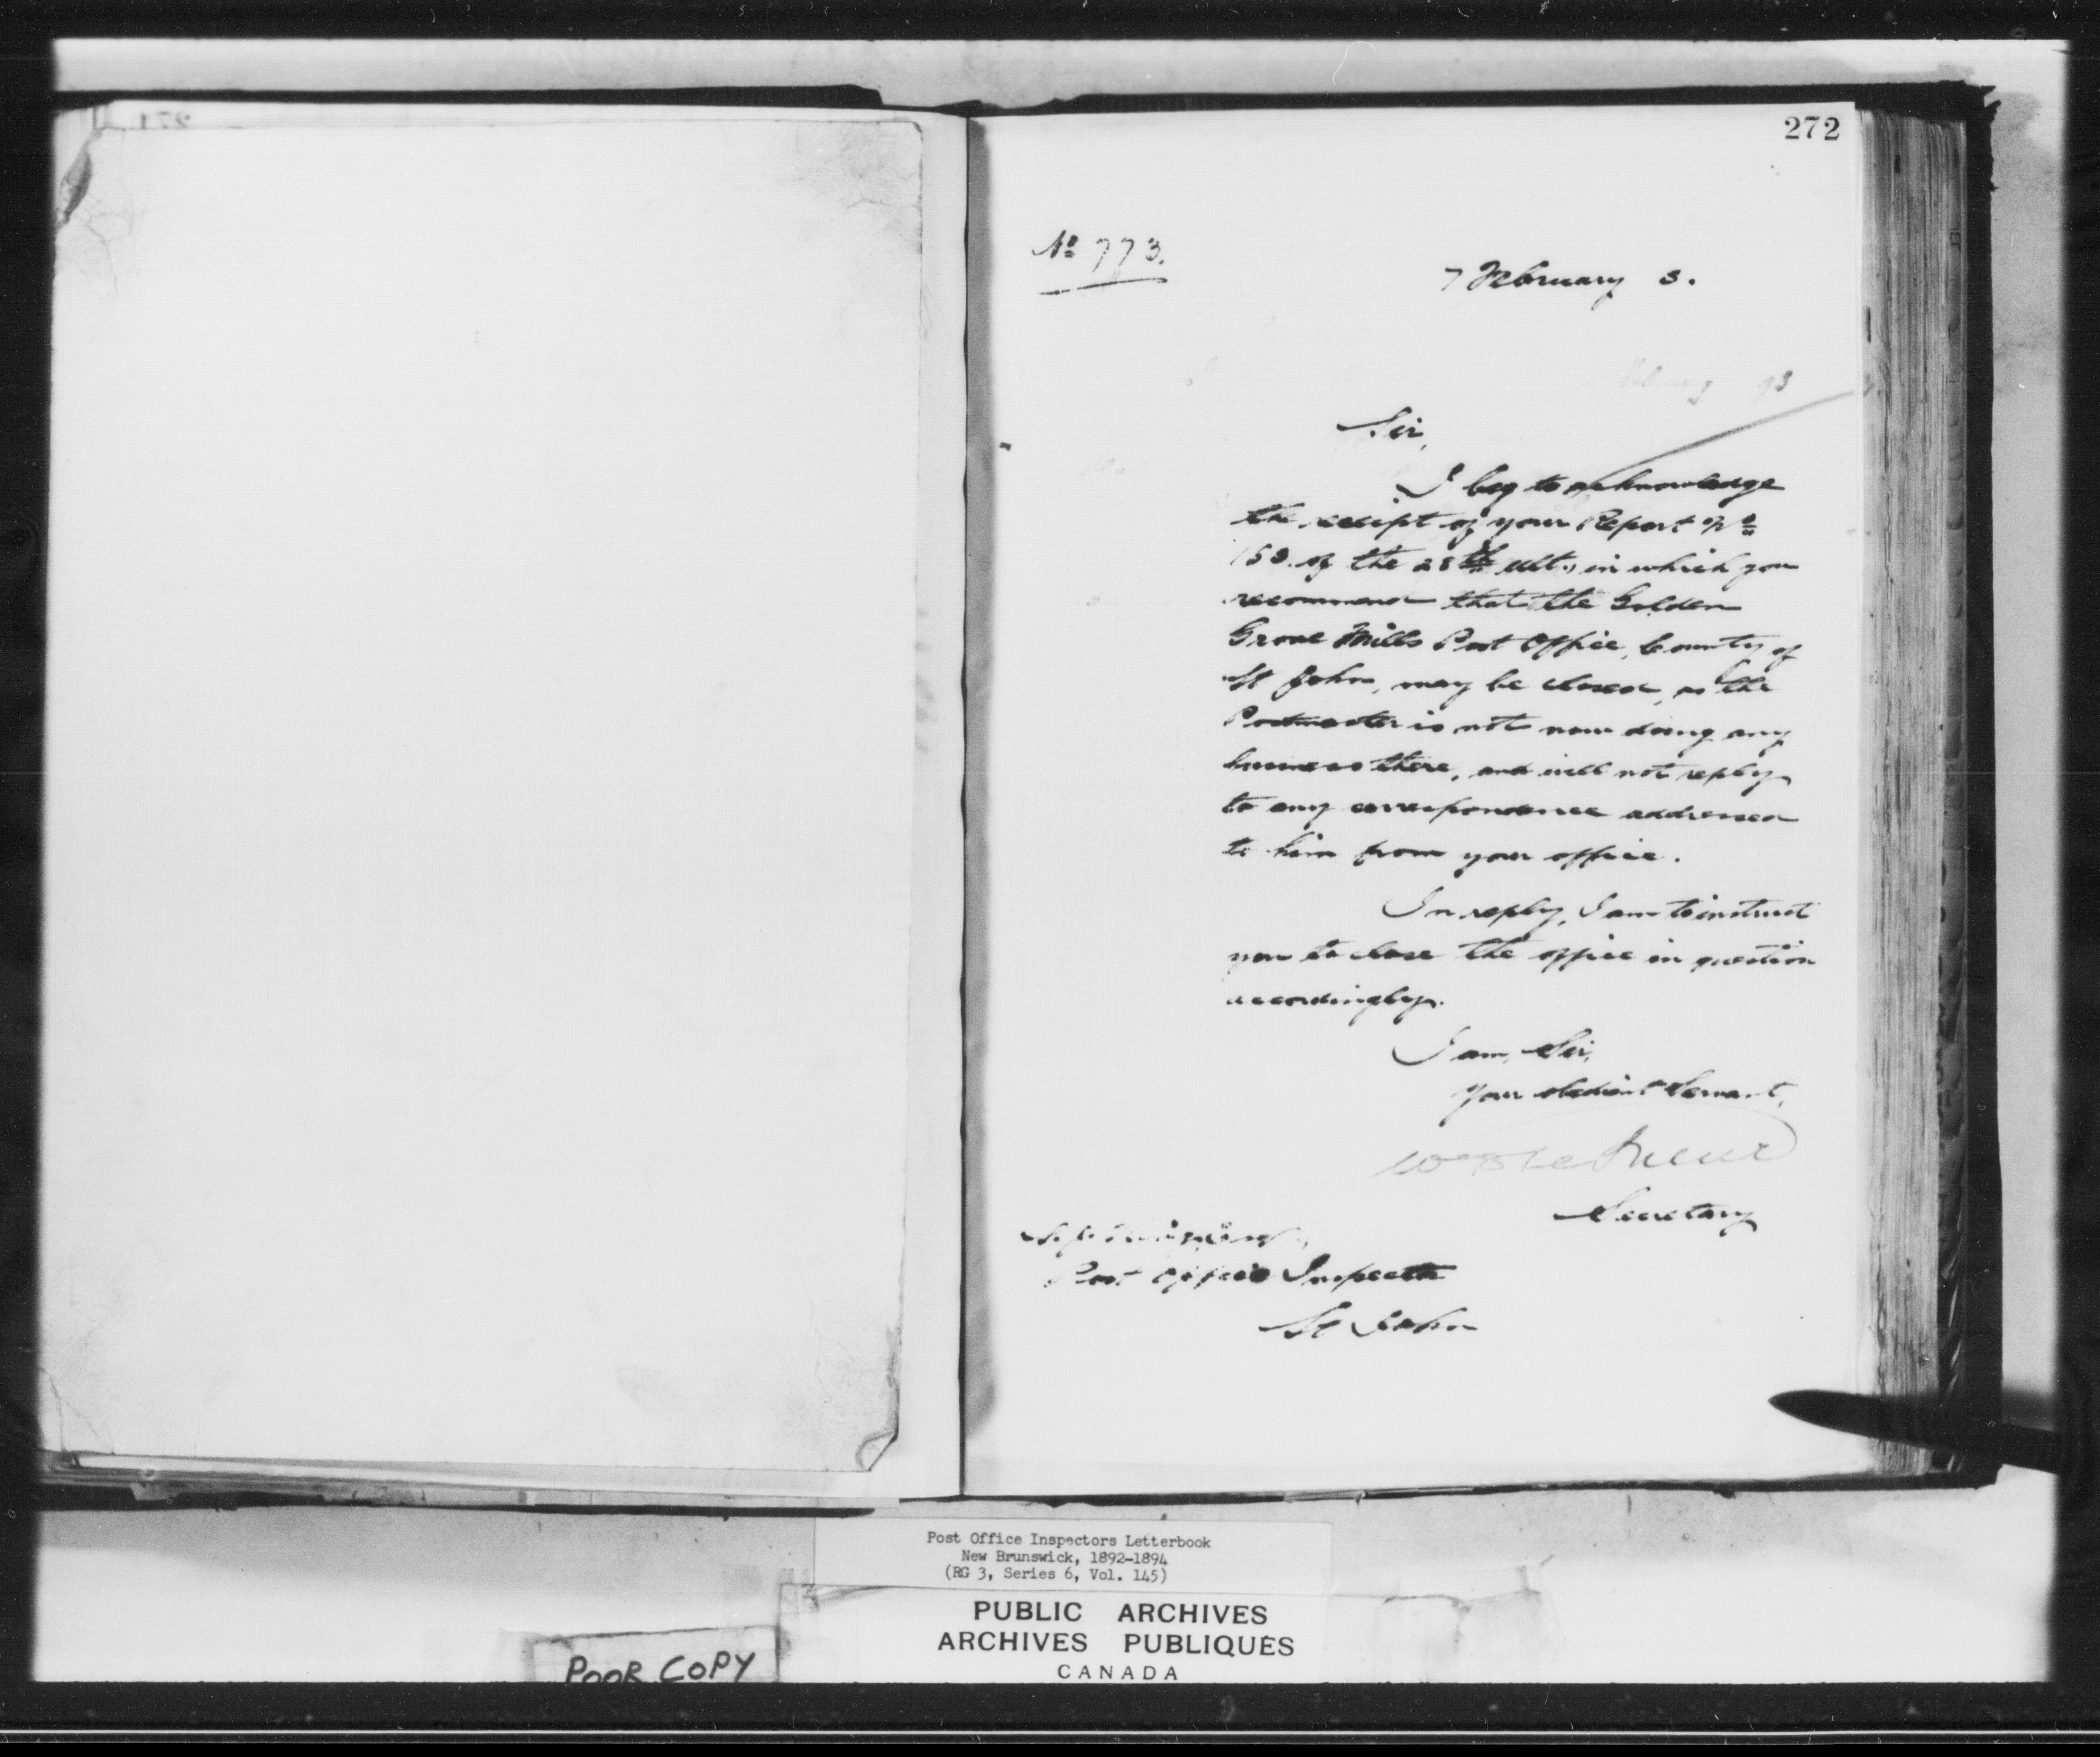 272
No 773.
7 February 3.
Sir,
I beg to acknowledge
the receipt of your Report No
153. of the 28th ult., in which you
recommend that the Golden
Grove Mills Post Office, County of
St John, may be closed, as the
Postmaster is not now doing any
business there, and will not reply
to any correspondence addressed
to him from your office.
In reply, I am to instruct
you to close the office in question
accordingly.
I am, Sir,
Your obedient Servant,
Secretary
Post Office Inspector
St John
Post Office Inspectors Letterbook
New Brunswick, 1892-1894
(RG 3, Series 6, Vol. 145)
PUBLIC ARCHIVES
ARCHIVES PUBLIQUES
CANADA
POOR COPY